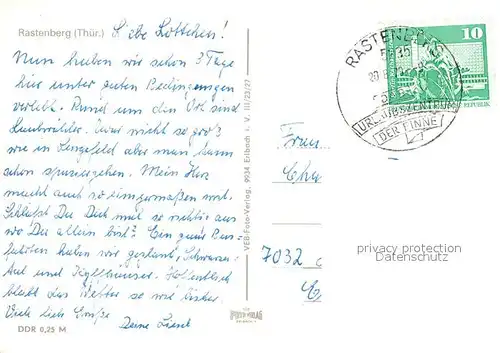 Rastenberg (Thür.)
Liebe Lottchen!
Nun haben wir schon 3 Tage
hier unter guten Bedingungen
verlebt. Rund um den Ort sind
Laubwälder. Zwar nicht so groß
wie in Lengefeld aber man kann
schön spazierengehen. Mein Herz
macht auch so einigermaßen mit.
Schläfst Du Dich mal so richtig aus
wo Du allein bist? Ein paar Bus-
fahrten haben wir geplant, Schwarza-
tal und Kyffhäuser. Hoffentlich
bleibt das Wetter so wie bisher.
Viele liebe Grüße
Deine Liesel
DDR 0,25 M
VEB-Foto-Verlag, 9934 Erlbach i. V. III/23/27
FOTO-VERLAG
ERLBACH
RASTENBERG
URLAUBSZENTRUM
DER FINNE
10
REPUBLIK
Frau
7032
privacy protection
Datenschutz